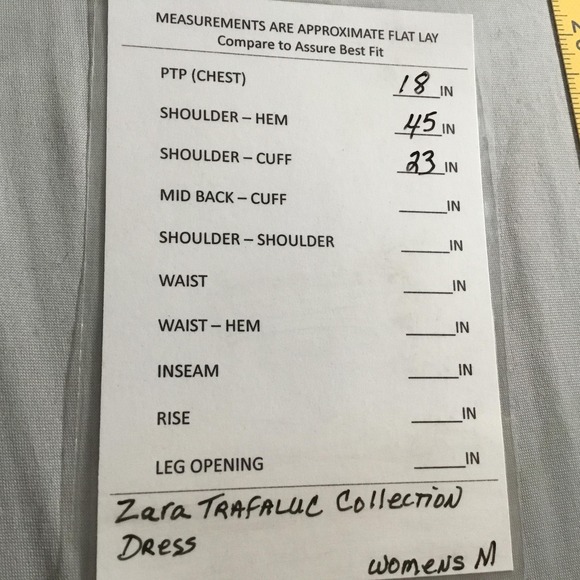 MEASUREMENTS ARE APPROXIMATE FLAT LAY
Compare to Assure Best Fit
PTP (CHEST) 18 IN
SHOULDER – HEM 45 IN
SHOULDER – CUFF 23 IN
MID BACK – CUFF ______IN
SHOULDER – SHOULDER ______IN
WAIST ______IN
WAIST – HEM ______IN
INSEAM ______IN
RISE ______IN
LEG OPENING ______IN
Zara TRAFALUC Collection
DRESS
WOMENS M